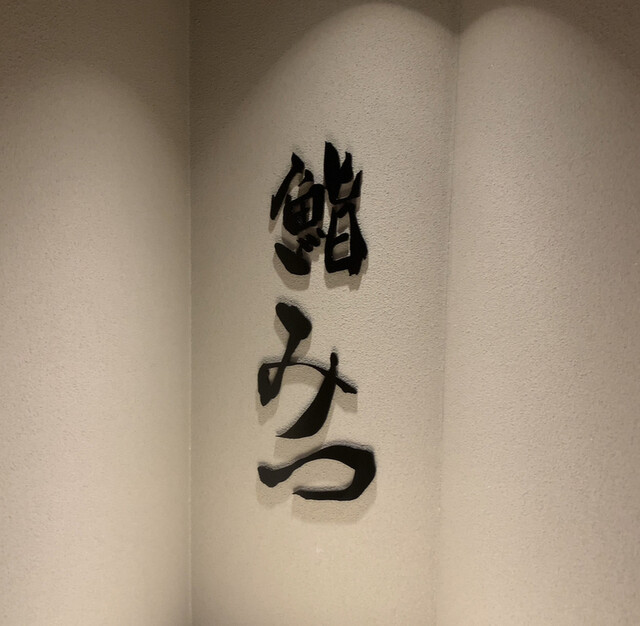 鮨みつ